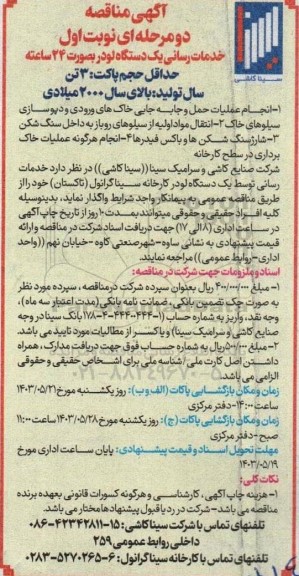 سینا کاشی
آگهی مناقصه
دو مرحله ای نوبت اول
خدمات رسانی یک دستگاه لودر بصورت ۲۴ ساعته
حداقل حجم پاکت: ۳ تن
سال تولید: بالای سال ۲۰۰۰ میلادی
۱-انجام عملیات حمل و جابه جایی خاک های ورودی و دپوسازی
سیلوهای خاک ۲-انتقال مواد اولیه از سیلوهای روباز به داخل سنگ شکن
۳-شارژ سنگ شکن ها و باکس فیدرها ۴-انجام هرگونه عملیات خاک
برداری در سطح کارخانه
شرکت صنایع کاشی و سرامیک سینا ((سینا کاشی)) در نظر دارد خدمات
رسانی توسط یک دستگاه لودر کارخانه سینا گرانول (تاکستان) خود را از
طریق مناقصه عمومی به پیمانکار واجد شرایط واگذار نماید، بدینوسیله
کلیه افراد حقیقی و حقوقی میتوانند بمدت ۱۰ روز از تاریخ چاپ آگهی
در ساعت اداری (۸ الی ۱۷) جهت دریافت اسناد شرکت در مناقصه و ارائه
قیمت پیشنهادی به نشانی ساوه-شهر صنعتی کاوه -خیابان نهم ((واحد
اداری-روابط عمومی)) مراجعه نمایند.
اسناد و ملزومات جهت شرکت در مناقصه:
۱- مبلغ ۴۰۰/۰۰۰/۰۰۰ ریال بعنوان سپرده شرکت در مناقصه، سپرده مورد نظر
به صورت چک تضمین بانکی، ضمانت نامه بانکی (مدت اعتبار سه ماه)، و
وجه نقد، واریز به شماره حساب (۱-۴۴۴۰۰۰-۴-۱۷۸ بانک سینا در وجه
صنایع کاشی و سرامیک سینا) و یا کسر از مطالبات مورد تایید می باشد.
۲- مبلغ ۵۰۰/۰۰۰ ریال به شماره حساب فوق جهت دریافت مدارک، همراه
داشتن اصل کارت ملی /شناسه ملی برای اشخاص حقیقی و حقوقی
الزامی می باشد.
زمان و مکان بازگشایی پاکات (الف و ب): روز یکشنبه مورخ ۱۴۰۳/۰۵/۲۱
ساعت ۱۴:۰۰-دفتر مرکزی
زمان و مکان بازگشایی پاکات (ج): روز یکشنبه مورخ ۱۴۰۳/۰۵/۲۸ ساعت ۱۱:۰۰
صبح - دفتر مرکزی
مهلت تحویل اسناد و قیمت پیشنهادی: پایان ساعت اداری مورخ
۱۴۰۳/۰۵/۱۹
نکات کلی:
۱- هزینه چاپ آگهی، کارشناسی و هرگونه کسورات قانونی بعهده برنده
مناقصه می باشد- شرکت در رد یا قبول پیشنهادها مختار می باشد.
تلفنهای تماس با شرکت سینا کاشی: ۱۵-۴۲۳۴۲۸۱۱-۰۸۶
داخلی روابط عمومی ۲۵۹
تلفنهای تماس با کارخانه سینا گرانول: ۶-۵۲۷۰۲۶۵-۰۲۸۳